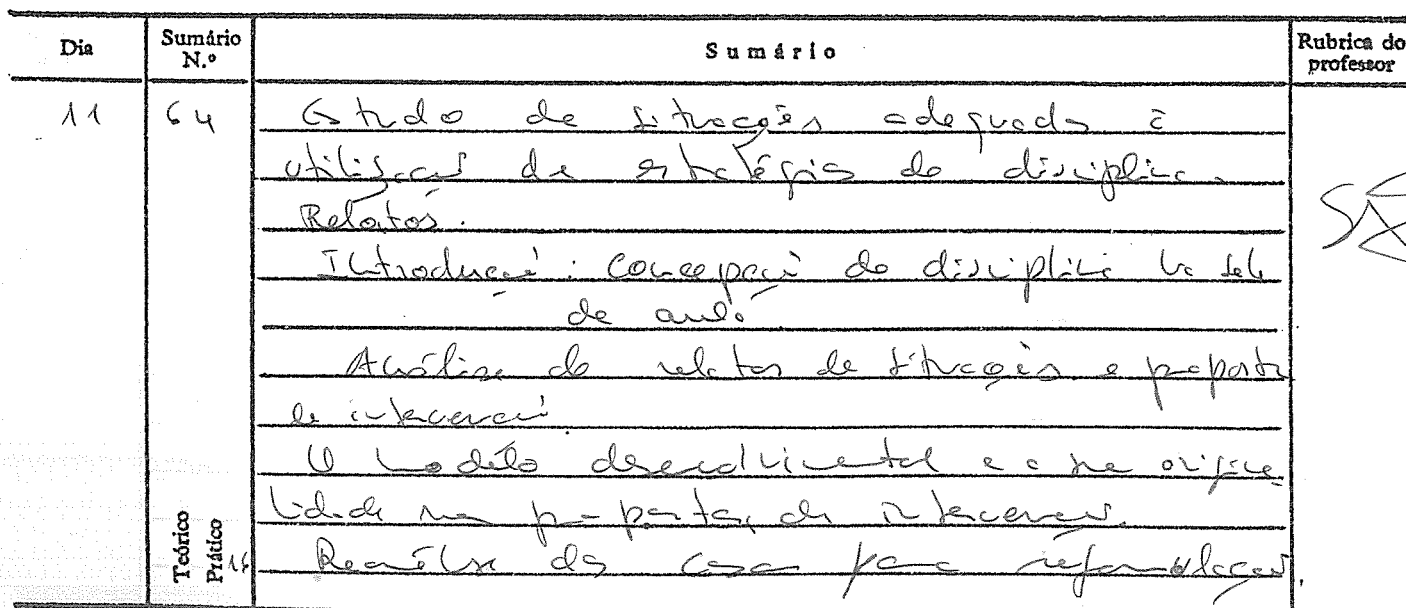 Dia Sumário N.º Sumário Rubrica do professor
11 64 Estudo de situações adequadas à
utilização de estratégias de disciplina.
Relatos.
Introdução: concepção de disciplina na sala
de aula
Análise de relatos de situações e proposta
de intervenção
O modelo desenvolvimental e a sua origina
lidade nas propostas de intervenção.
Teórico Prático 16 Reanálise dos casos para reformulação.